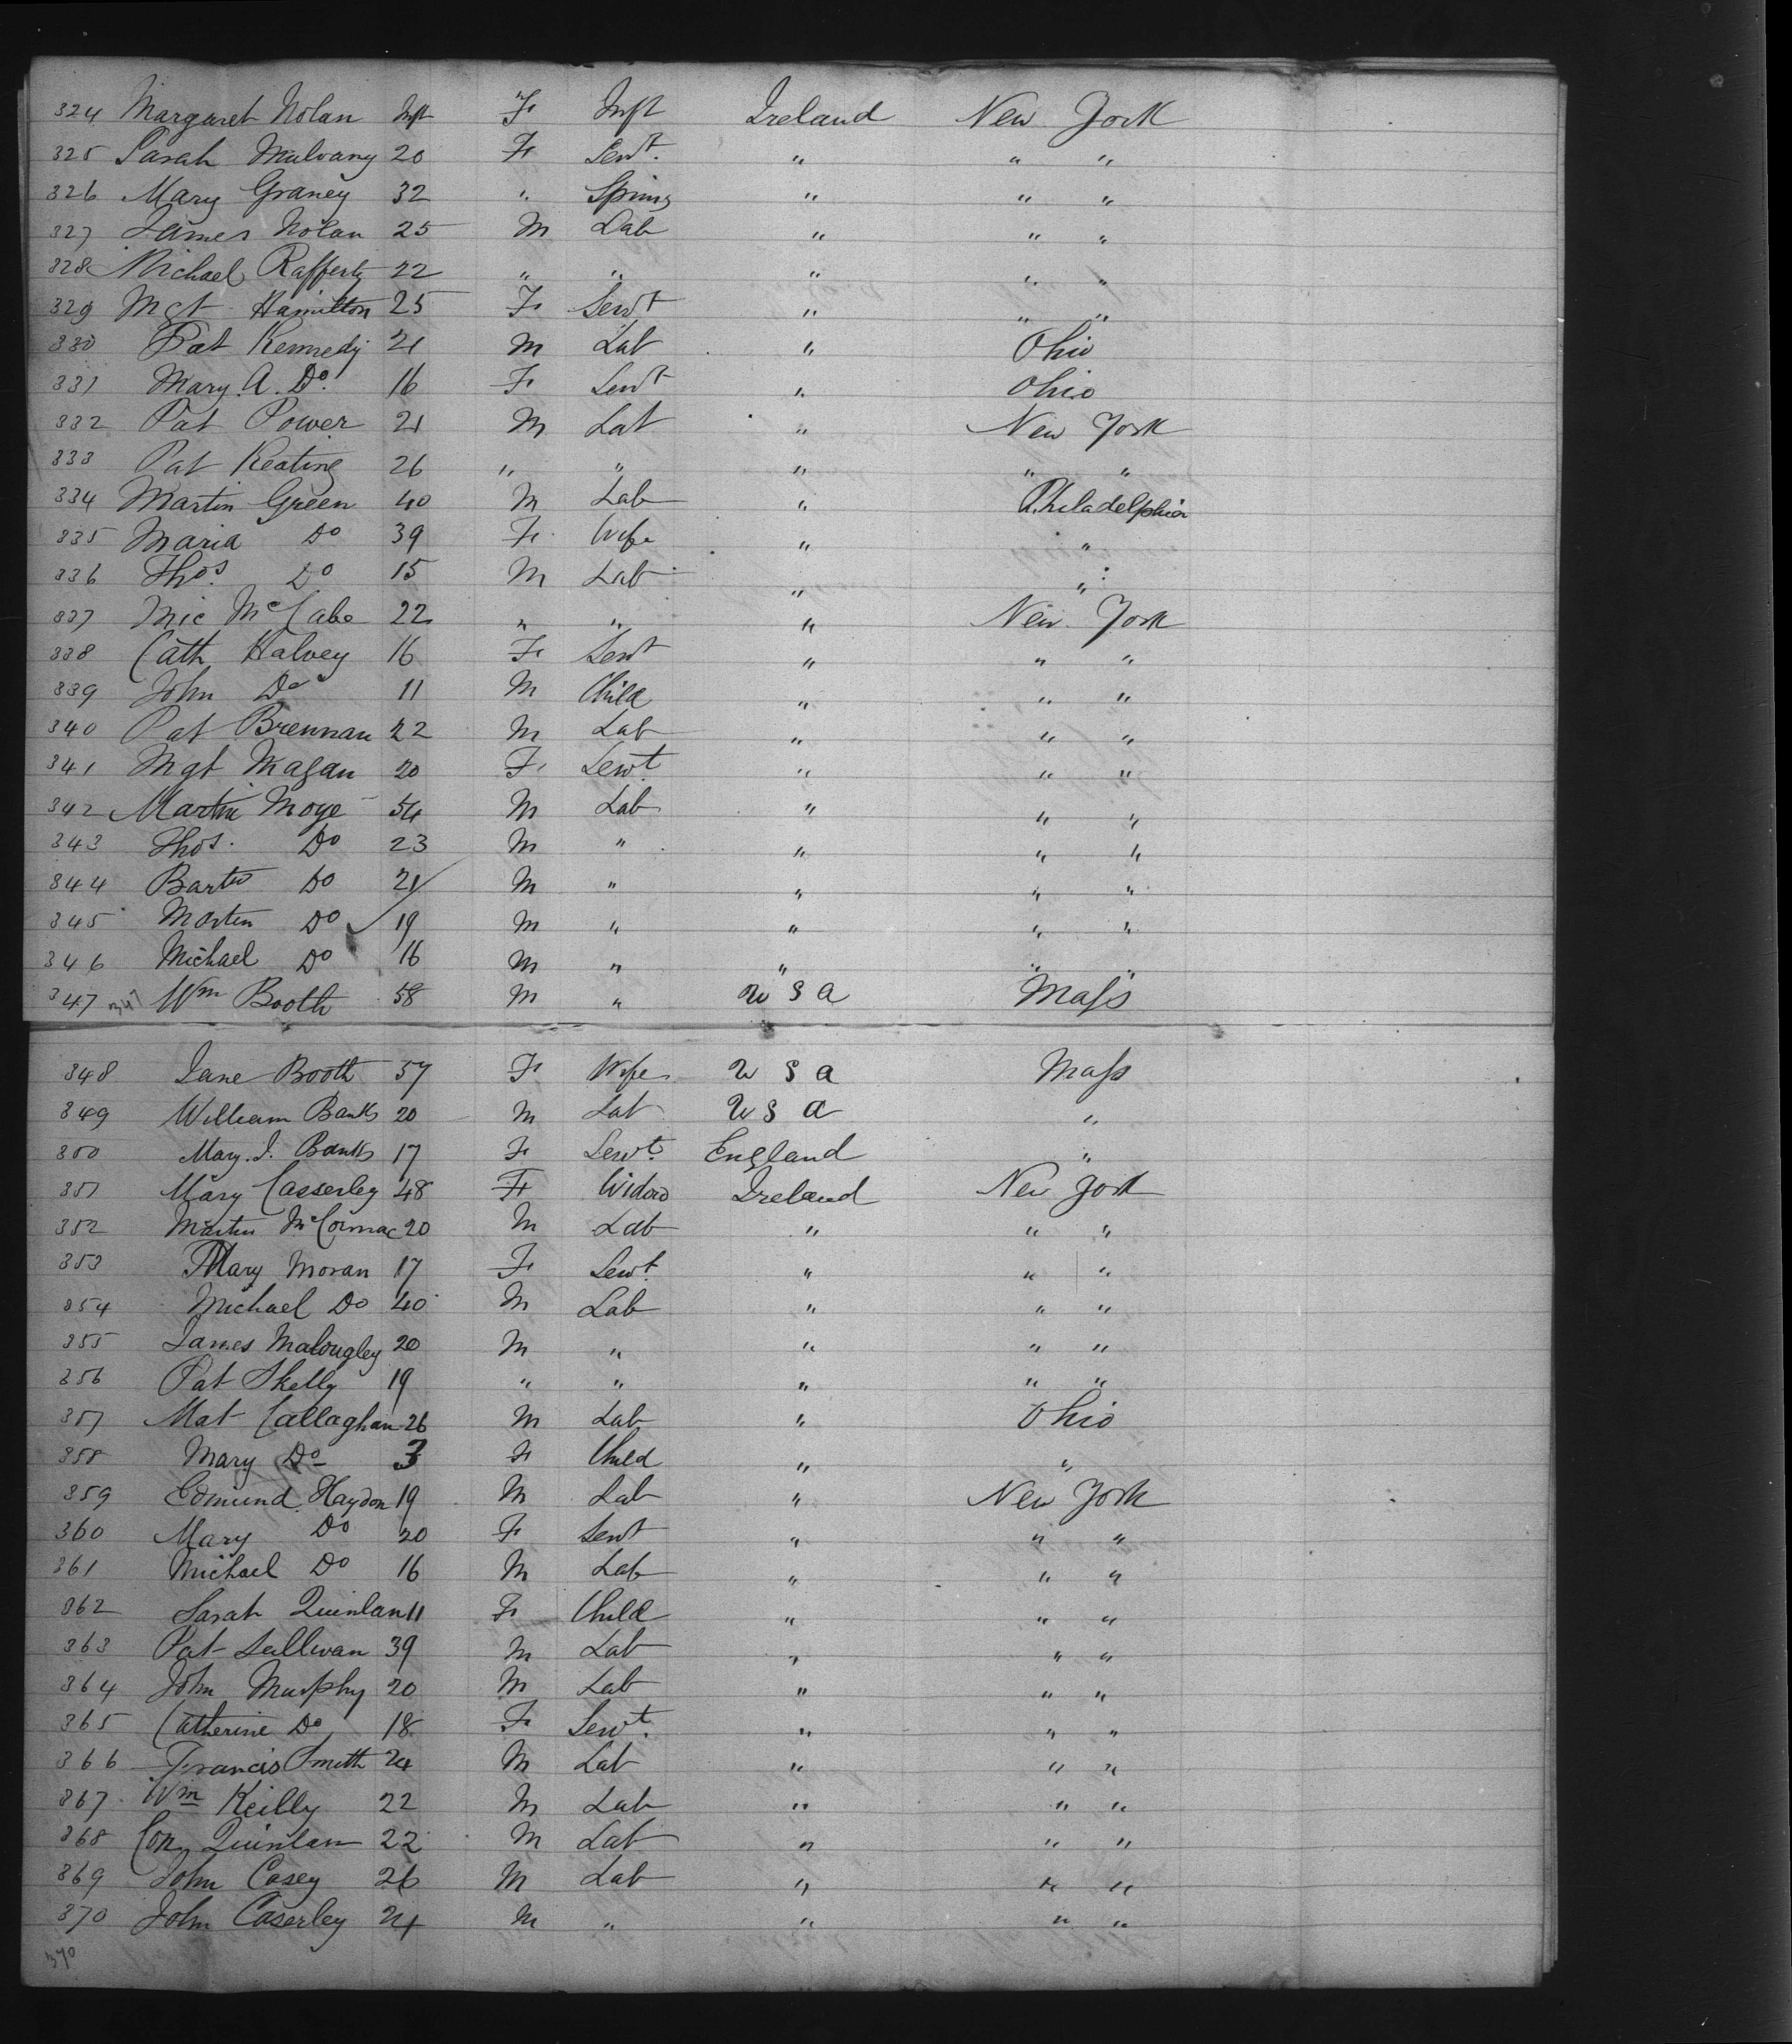 324 Margaret Nolan Inft F Inft Ireland New York
325 Sarah Mulvany 20 F Servt. " " "
326 Mary Graney 32 " Spinr " " "
327 James Nolan 25 M Lab " " "
328 Michael Rafferty 22 " " " " "
329 Mgt Hamilton 25 F Servt " " "
330 Pat Kennedy 21 M Lab " Ohio
331 Mary A. Do. 16 F Servt " Ohio
332 Pat Power 21 M Lab " New York
333 Pat Keating 26 " " " " "
334 Martin Green 40 M Lab " Philadelphia
335 Maria Do 39 F Wife " "
336 Thos. Do 15 M Lab " "
337 Mic McCabe 22 " " " New York
338 Cath Halvey 16 F Servt " " "
339 John Do 11 M Child " " "
340 Pat Brennan 22 M Lab " " "
341 Mgt Magan 20 F Servt. " " "
342 Martin Moye 54 M Lab " " "
343 Thos. Do 23 M " " " "
344 Bartw Do 21 M " " " "
345 Martin Do 19 M " " " "
346 Michael Do 16 M " " " "
347 347 Wm Booth 58 M " U S A Mass
348 Jane Booth 57 F Wife U S A Mass
349 William Banks 20 M Lab U S A "
350 Mary J. Banks 17 F Servt. England "
351 Mary Casserley 48 F Widow Ireland New York
352 Martin McCormac 20 M Lab " " "
353 Mary Moran 17 F Servt. " " "
354 Michael Do 40 M Lab " " "
355 James Malougley 20 M " " " "
356 Pat Skelly 19 " " " " "
357 Mat Callaghan 26 M Lab " Ohio
358 Mary Do 3 F Child " "
359 Edmund Haydon 19 M Lab " New York
360 Mary Do 20 F Servt " " "
361 Michael Do 16 M Lab " " "
362 Sarah Quinlan 11 F Child " " "
363 Pat Sullivan 39 M Lab " " "
364 John Murphy 20 M Lab " " "
365 Catherine Do 18 F Servt. " " "
366 Francis Smith 24 M Lab " " "
367 Wm Keilly 22 M Lab " " "
368 Con Quinlan 22 M Lab " " "
369 John Casey 26 M Lab " " "
370 John Caserley 24 M " " " "
370